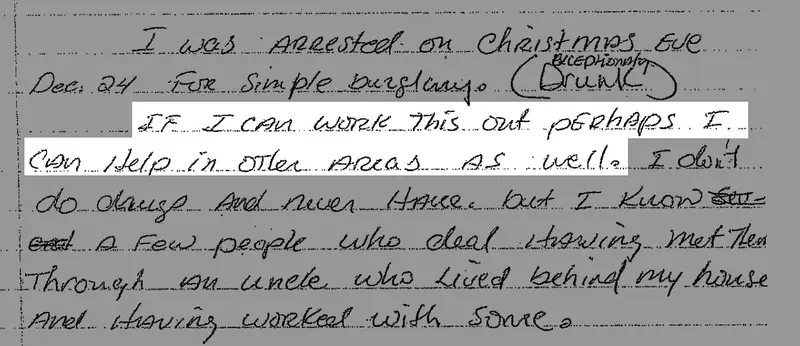 I was arrested on Christmas Eve
Dec. 24 For simple burglary. (exceptionally Drunk)
IF I CAN work This out perhaps I
CAN Help in other Areas As well. I don't
do drugs And never Have. but I Know
A Few people who deal Having met Them
Through An uncle who Lived behind my house
And Having worked with some.